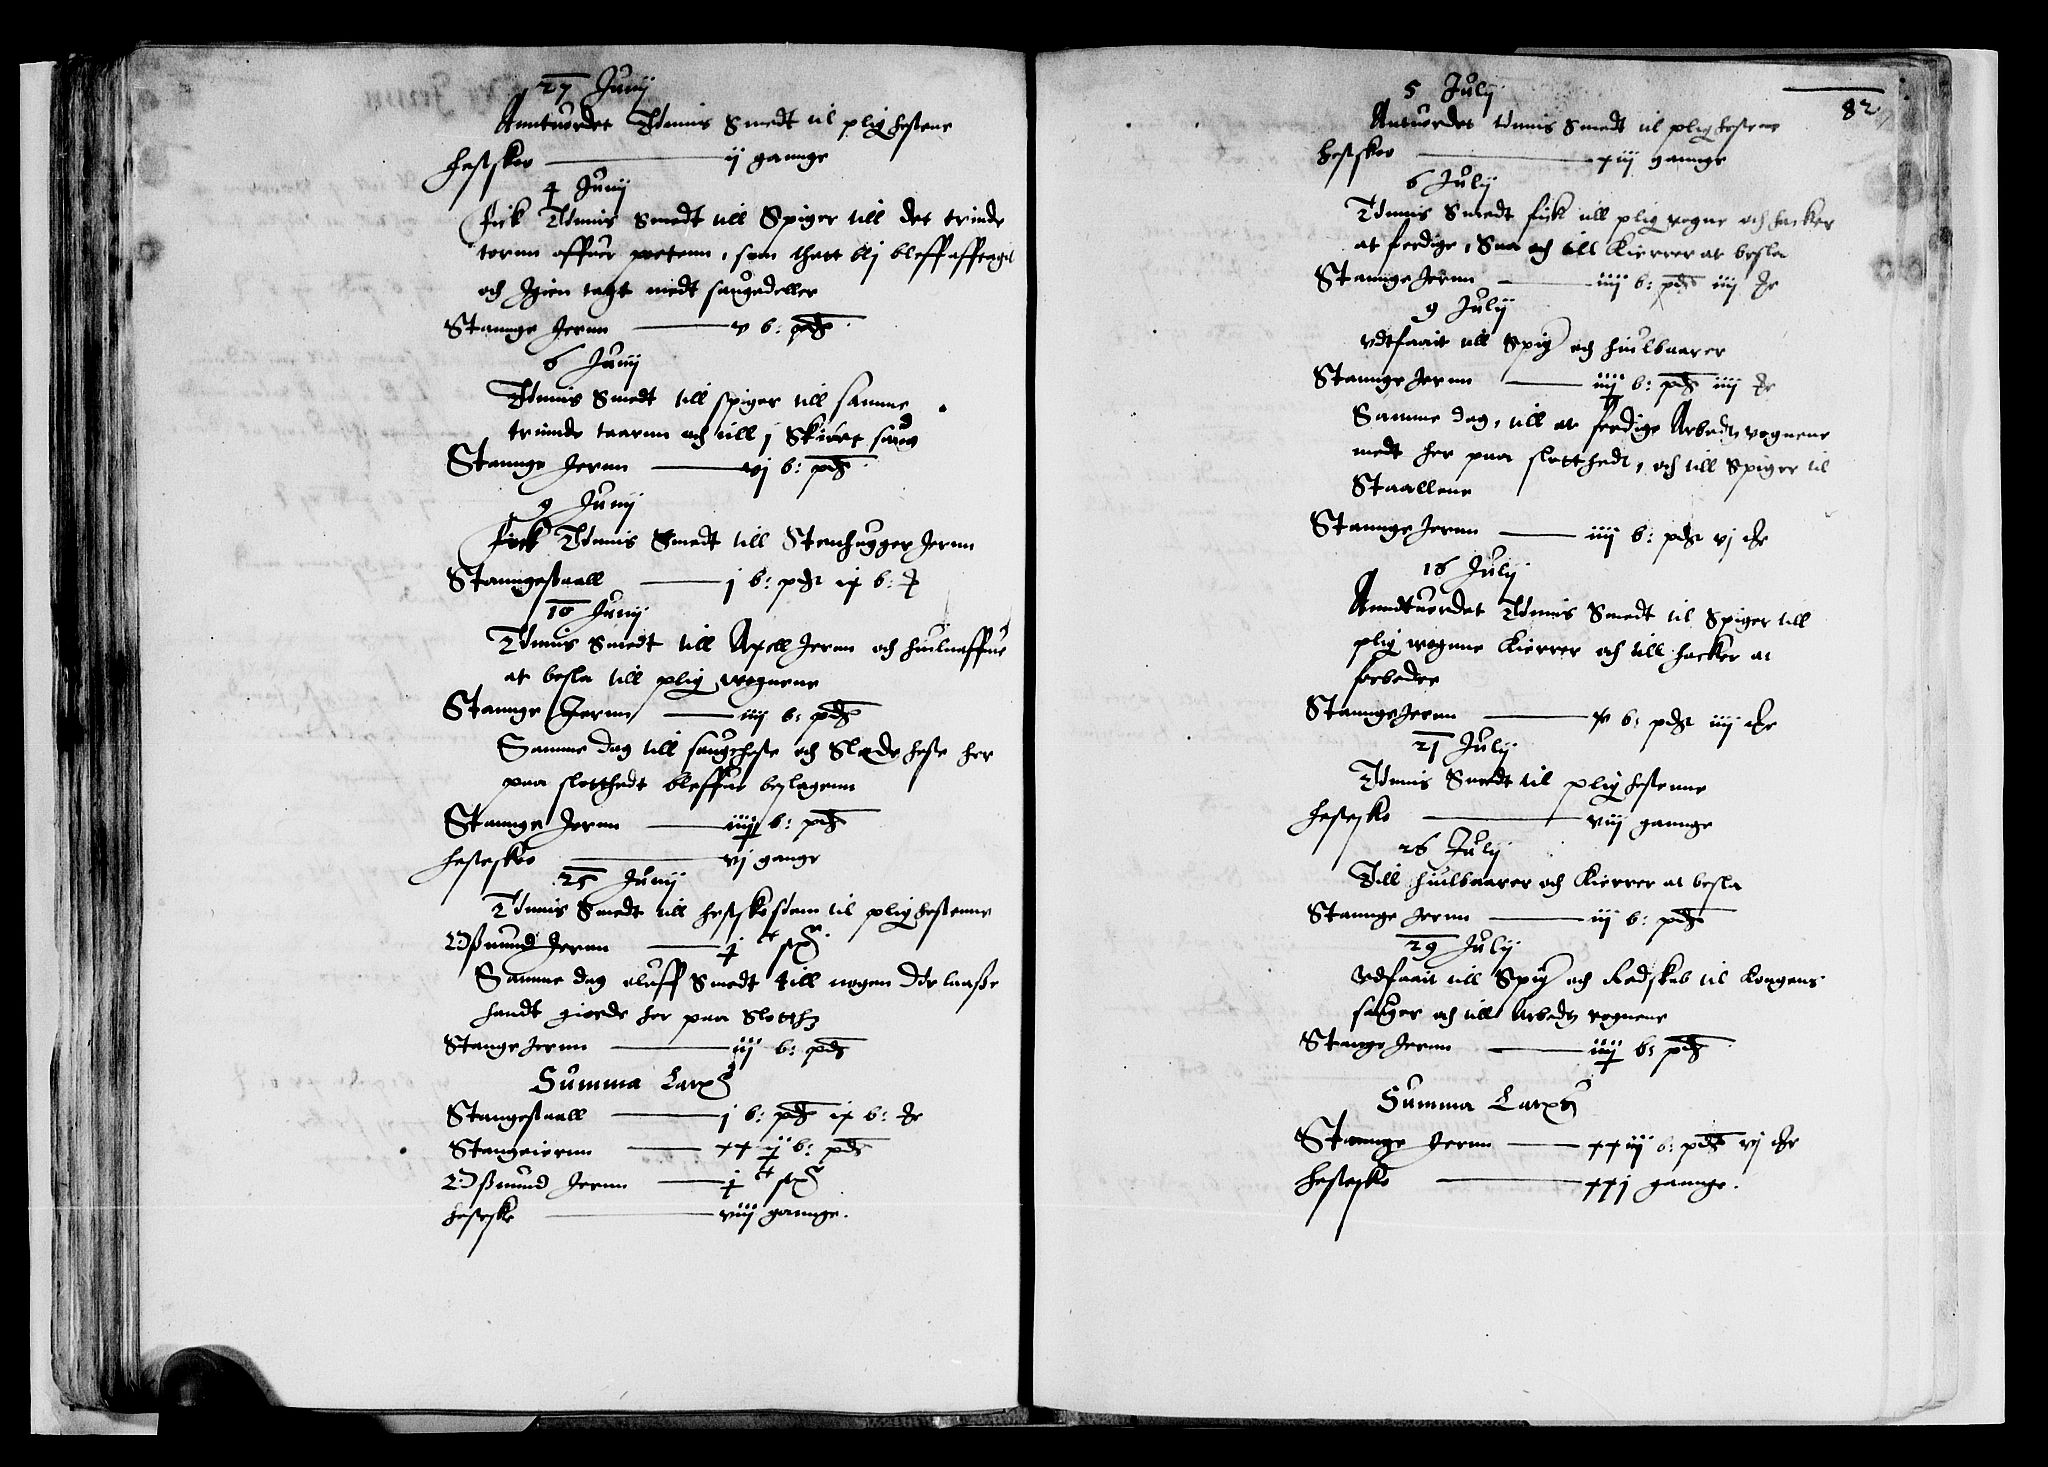 27 Junij
Anntuordet Tønnis Smedt til plig hestene
hestskoo ij gannge
4 Junij
fick Tønnis Smedt till Spiger till det trinde
tornn offuer portenn, som thatt blj bleff afftagit
och Igien tagt medt saugedeller
Stannge Jernn v b: pdz
6 Junij
Tønnis Smedt till spiger till samme
trinde taarnn och till j Skiøtt saug
Stannge Jernn vj b: pdz
9 Junij
fick Tønnis Smedt till Stenhugger Jernn
Stanngestaall j b: pdz ix b:
10 Junij
Tønnis Smedt till Axell Jernn och hiulnaffue
at besla till plig vognene
Stannge Jernn iiij b: pdz
Samme dag till saugheste och Slede heste her
paa slotthedt bleffue beslagenn
Stannge Jernn iiij b: pdz
hesteskoo vj gange
25 Junij
Tønnis Smedt till hestskosøm til plig hestenne
Osmund Jernn j
Samme dag oluff Smedt till nogen Dørlaasse
handt giorde her paa Slotthz
Stange Jernn iij b: pdz
Summa Larz
Stangestaall j b: pdz ix b:
Stangeiernn xx ij b: pdz
Osmund Jernn j
hestsko viij gannge.
82
5 Julij
Antuordet tønnis Smedt til plig hestene
hestskoo xiij gannge
6 Julij
Tønnis Smedt fick till plig vogne och hacker
at ferdige, Saa och till Kierrer at besla
Stannge Jernn iiij b: pdz iiij
9 Julij
vdtfaait till Spig och hiulbaarer
Stannge Jernn iiij b: pdz iiij
Samme dag, till at ferdige Arbedz vognene
medt her paa slotthedt, och till Spiger til
Staallene
Stannge Jernn iiij b: pdz vj
16 Julij
Anndtuordet Tønnis Smedt til Spiger till
plig wognne Kierrer och till hacker at
forbedre
Stannge Jernn v b: pdz iiij
21 Julij
Tønnis Smedt til plig hestenne
hestesko viij gannge
26 Julij
Till hiulbaarer och Kierrer at besla
Stannge Jernn iij b: pdz
29 Julij
vdfaait till Spig och Redskab til Kongens
sauger och till Arbedz vognene
Stannge Jernn iiij b: pdz
Summa Larz
Stannge Jernn xx iij b: pdz vj
hestesko xxj gannge.